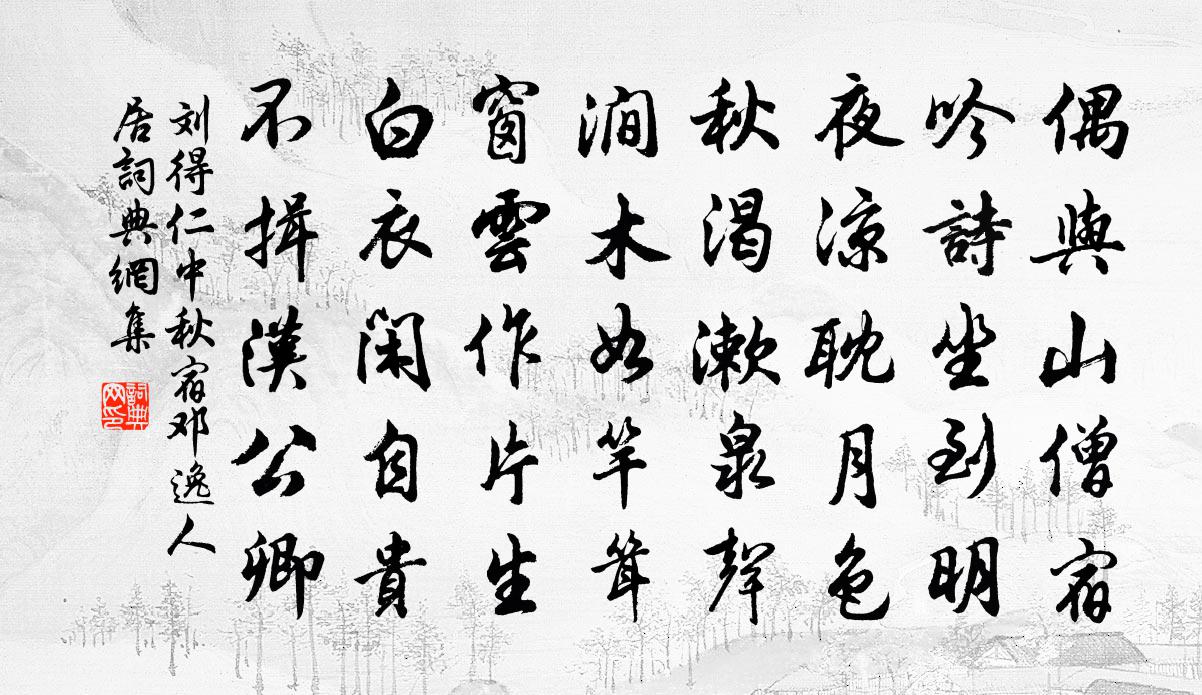 偶與山僧宿
吟詩坐到明
夜涼耽月色
秋渴漱泉聲
澗木如竿聳
窗雲作片生
白衣閑自貴
不揖漢公卿
刘得仁中秋宿邓逸人
居詞典網集
詞典网印